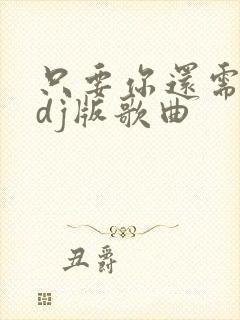 只要你還需
dj版歌曲
丑爵